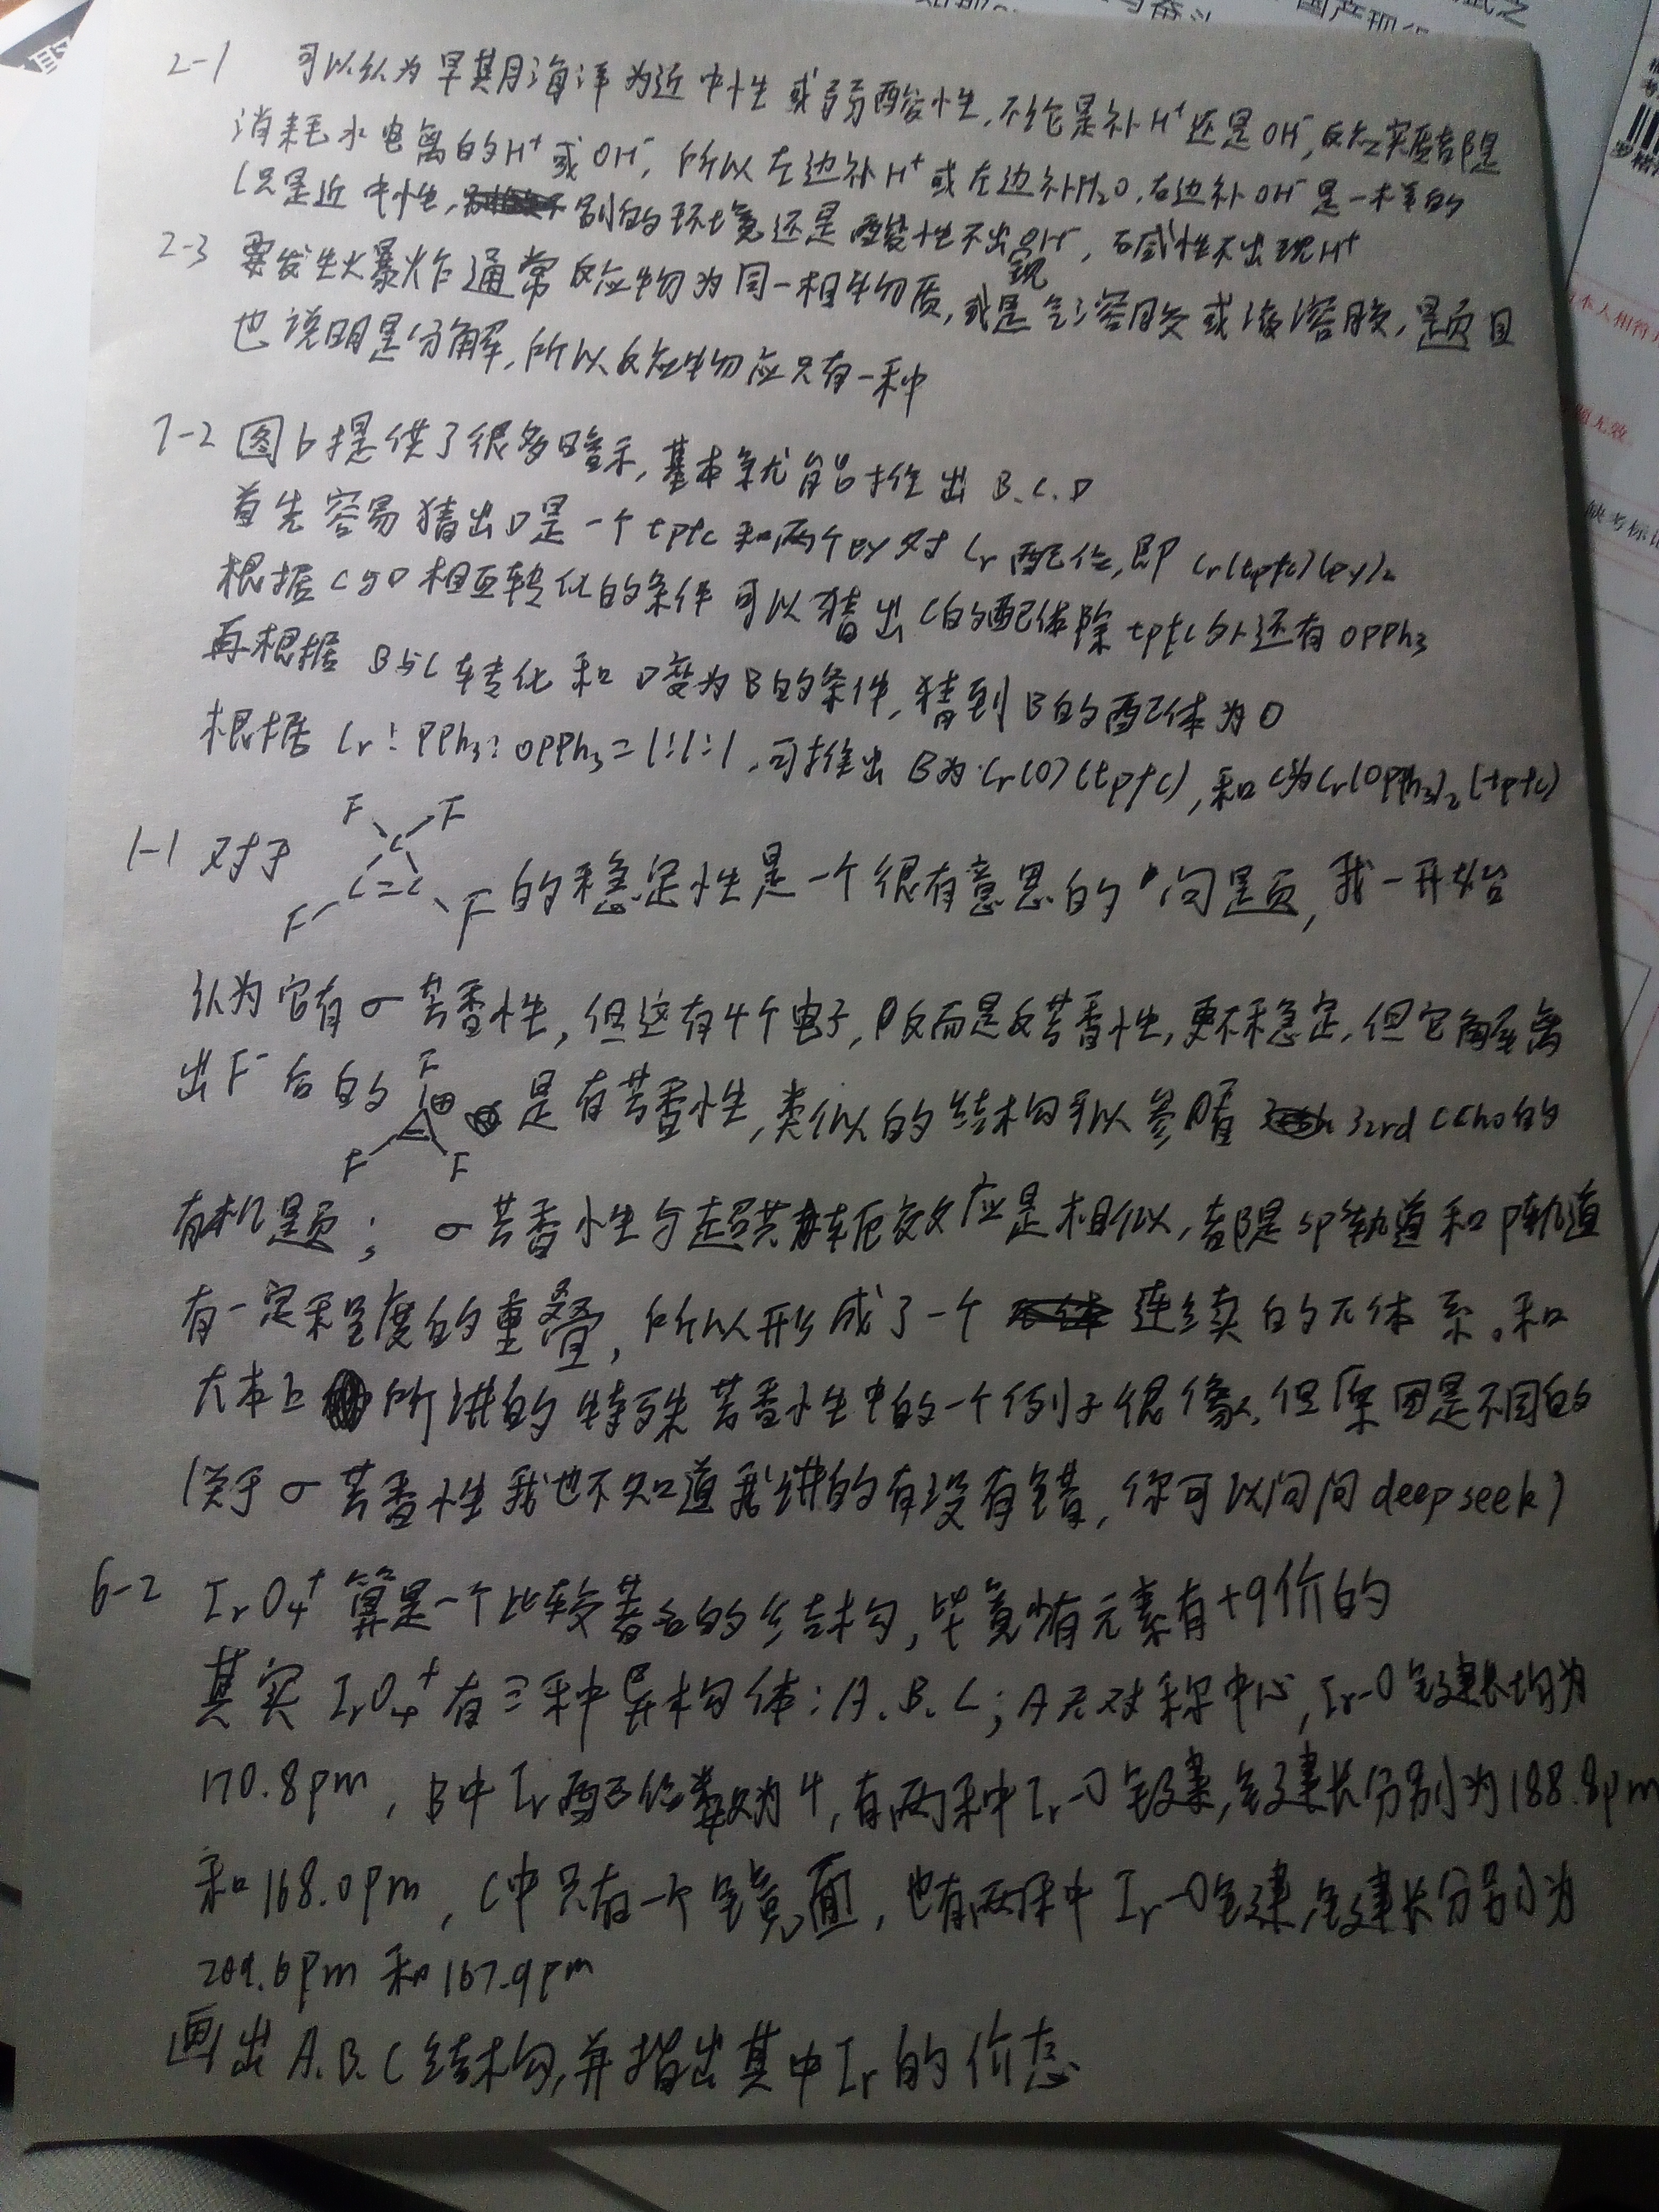 2-1 可以认为早期海洋为近中性或弱酸性,不论是补H⁺还是OH⁻,反应实质都是
消耗水电离的H⁺或OH⁻,所以左边补H⁺或左边补H₂O,右边补OH⁻是一样的
(只是近中性,别的环境还是酸性不出现OH⁻,碱性不出现H⁺
2-3 要发生爆炸通常反应物为同一相物质,或是气溶胶或液溶胶,题目
也说明是分解,所以反应物应只有一种
7-2 图b提供了很多暗示,基本就能推出B.C.D
首先容易猜出D是一个tptc和两个py对Cr配位,即Cr(tptc)(py)₂
根据C与D相互转化的条件可以猜出C的配体除tptc外还有OPPh₃
再根据B与C转化和D变为B的条件,猜到B的配体为O
根据Cr:PPh₃:OPPh₃=1:1:1,可推出B为Cr(O)(tptc),和C为Cr(OPPh₃)₂(tptc)
F F
C
1-1 对于 C=C 的稳定性是一个很有意思的问题,我一开始
F F
认为它有σ芳香性,但这有4个电子,反而是反芳香性,更不稳定,但它解离
F
出F⁻后的 ⊕ 是有芳香性,类似的结构可以参瞻32rd CChO的
F F
有机题;σ芳香性与超共轭效应是相似,都是sp³轨道和p轨道
有一定程度的重叠,所以形成了一个连续的π体系。和
大本上所讲的特殊芳香性中的一个例子很像,但原因是不同的
(关于σ芳香性我也不知道我讲的有没有错,你可以问问deepseek)
6-2 IrO₄⁺算是一个比较著名的结构,毕竟少有元素有+9价的
其实IrO₄⁺有三种异构体:A.B.C;A无对称中心,Ir-O键键长均为
170.8pm,B中Ir配位数为4,有两种Ir-O键,键长分别为188.8pm
和168.0pm,C中只有一个镜面,也有两种Ir-O键,键长分别为
209.6pm和167.9pm
画出A.B.C结构,并指出其中Ir的价态